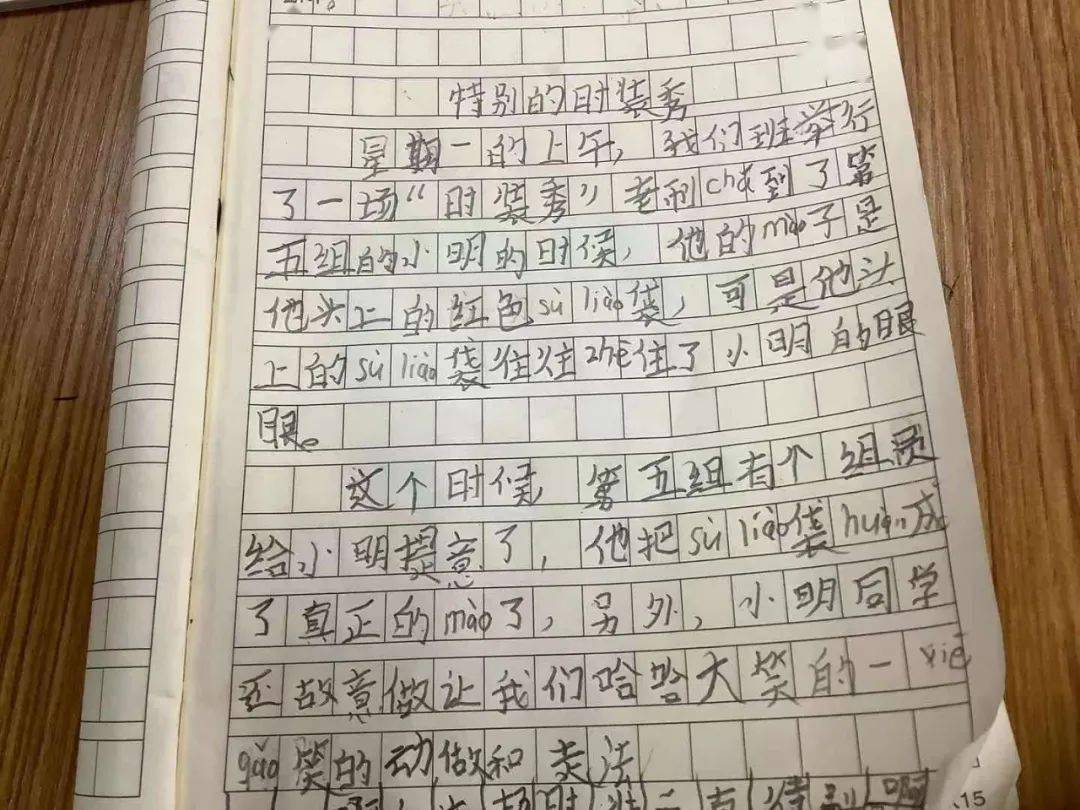 特别的时装秀
星期一的上午，我们班举行
了一场“时装秀”老利chā到了第
五组的小明的时候，他的mào子是
他头上的红色sù liào袋，可是他头
上的sù liào袋住住zhē住了小明的眼
眼。
这个时候 第五组有个组员
给小明提意了，他把sù liào袋huàn成
了真正的mào了，另外，小明同学
还故意做让我们哈哈大笑的一xiē
gǎo笑的动做和走法
15